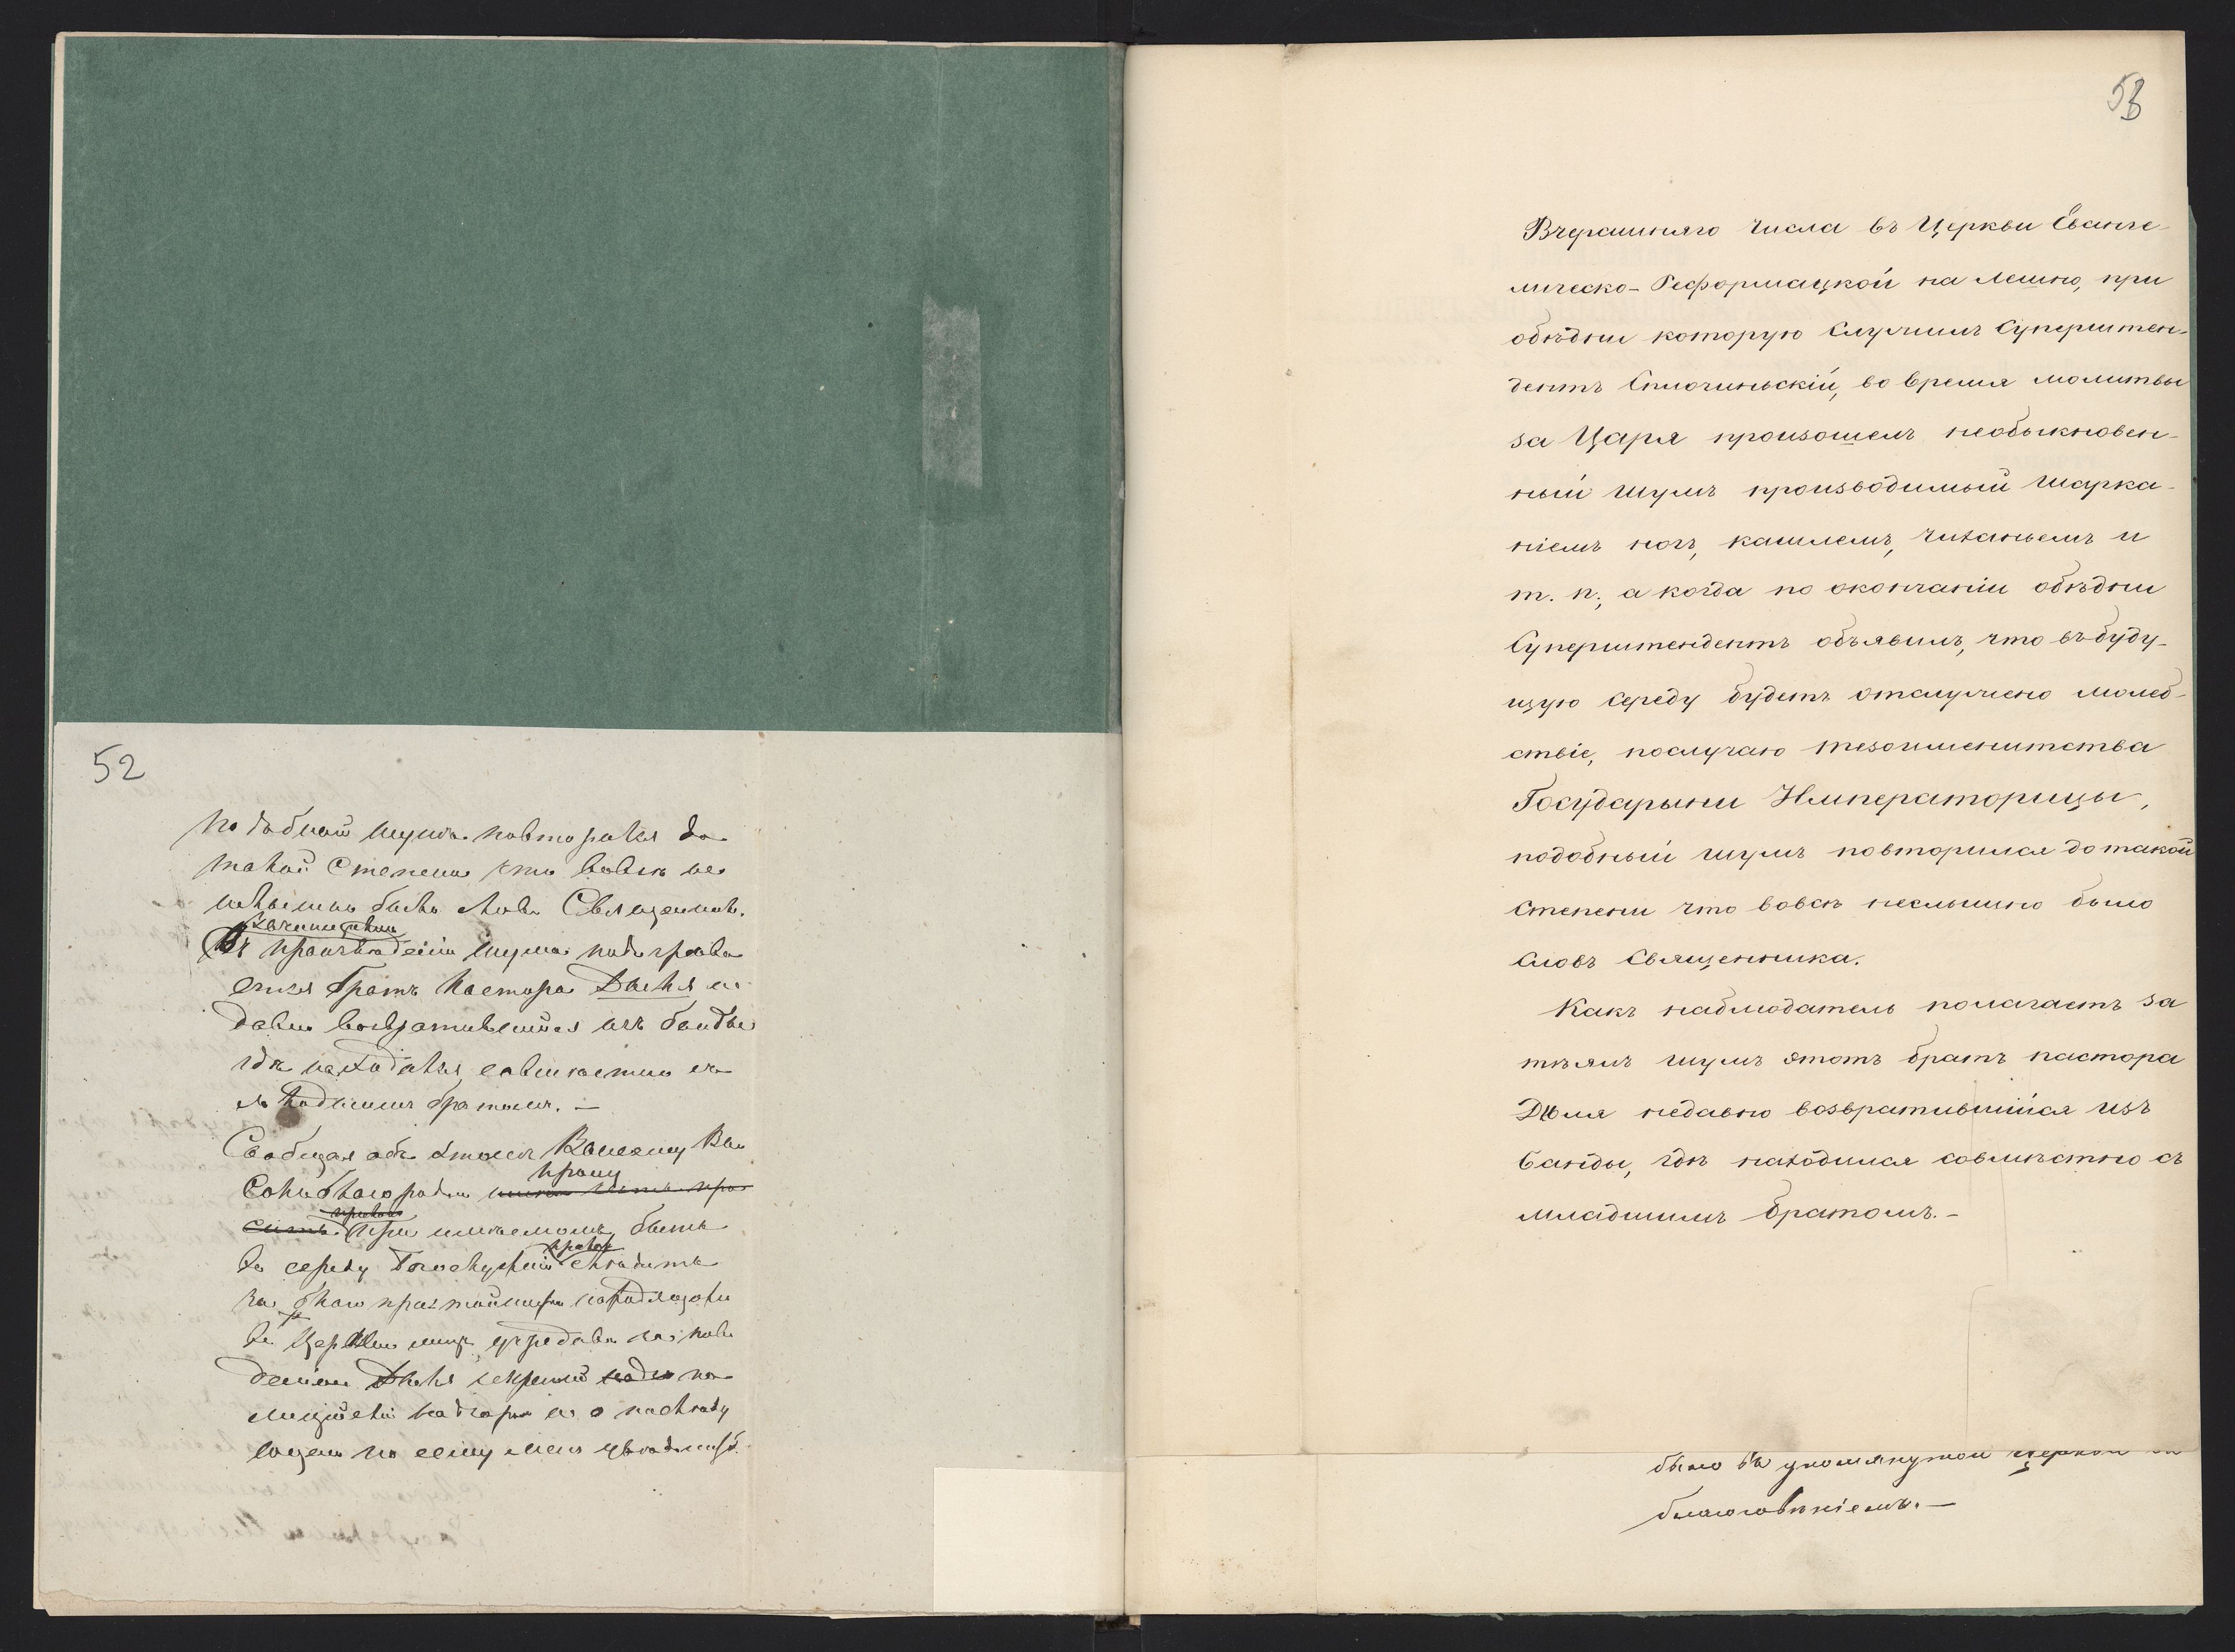 52
подобный шумъ повторился до
такой степени что вовсе не
слышно было словъ Священника.
Зачинщикомъ
въ произведеніи шума подозрѣва
ется братъ Пастора Дiеля не
давно возвратившійся изъ банды
гдѣ находился совмѣстно съ
младшимъ братомъ. —
Сообщая объ этомъ Вашему Вы
прошу
Сокоблагородію
при имѣемомъ быть
въ середу Богослуженіи слѣдить
за
въ Церкви
53
Вчерашняго числа въ Церкви Еванге-
лическо-Реформацкой на Лешно, при
обѣдни которую служилъ Суперинтен-
дентъ Спленчиньскій, во время молитвы
за Царя произошелъ необыкновен-
ный шумъ производимый шарка-
ніемъ ногъ, кашлемъ, чиханьемъ и
т. п., а когда по окончаніи обѣдни
Суперинтендентъ объявилъ, что въ буду-
щую середу будетъ отслужено молеб-
ствіе, послучаю тезоименитства
Государыни Императорицы,
подобный шумъ повторился до такой
степени что вовсѣ неслышно было
словъ Священника.
Какъ наблюдатель полагаетъ за
тѣялъ шумъ этотъ братъ пастора
Дiеля недавно возвратившійся изъ
банды, гдѣ находился совмѣстно съ
младшимъ братомъ. –
было въ упомянутой Церкви
благоговѣніемъ. —